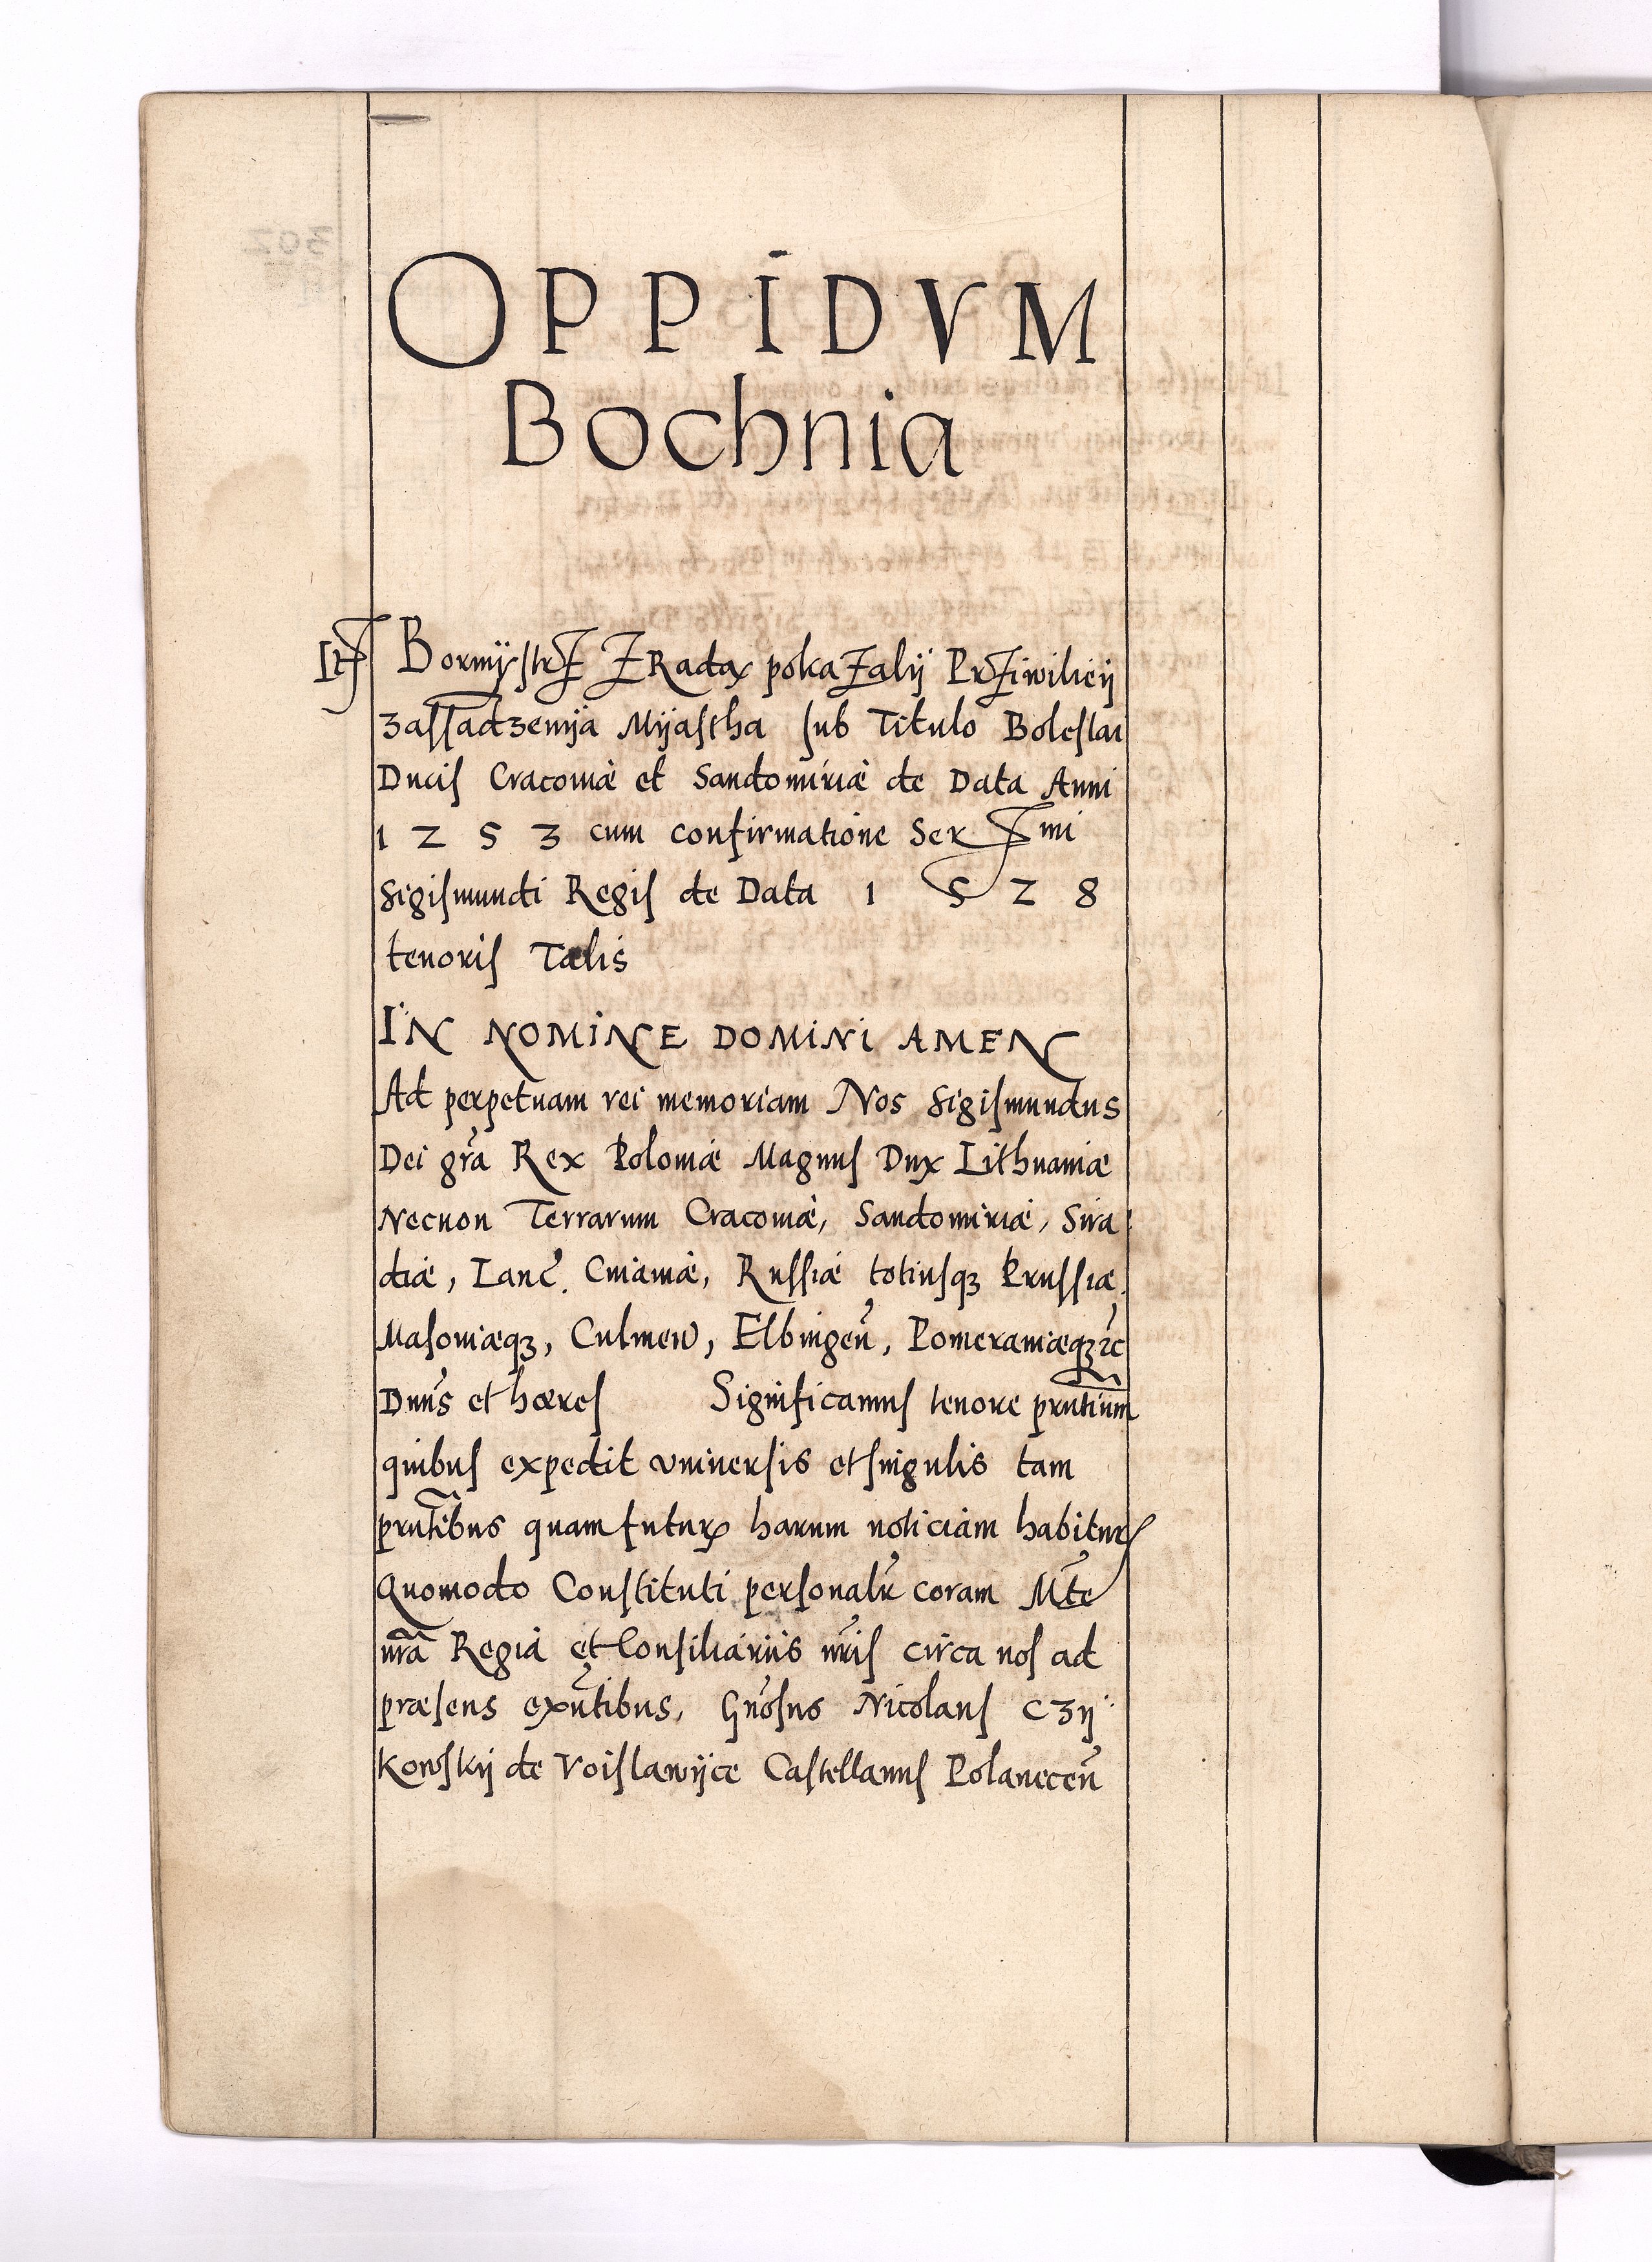 OPPIDVM
Bochnia
It Bormÿstrz z Radax pokazalÿ Prziwilieÿ
zassadzenÿa Mÿastha sub Titulo Boleslai
Ducis Cracoviæ et Sandomiriæ de Data Anni
1 2 5 3 cum confirmatione Ser mi
Sigismundi Regis de Data 1 5 2 8
tenoris Talis
IN NOMINE DOMINI AMEN
Ad perpetuam rei memoriam Nos Sigismundus
Dei gra Rex Poloniæ Magnus Dux Lithuaniæ
Necnon Terrarum Cracoviæ, Sandomiriæ, Sira
diæ, Lanc. Cuiaviæ, Russiæ totiusq3 Prussiæ.
Masoviæq3, Culmen, Elbingen, Pomeraniæq3 &c
Dnus et hæres Significamus tenore prntium
quibus expedit universis et singulis tam
prntibus quam futur harum noticiam habitur
Quomodo Constituti personalr coram Mte
nra Regia et Consiliariis nris circa nos ad
præsens exntibus, Gnosus Nicolaus Czÿ
kowskÿ de Voislawÿce Castellanus Polanecen